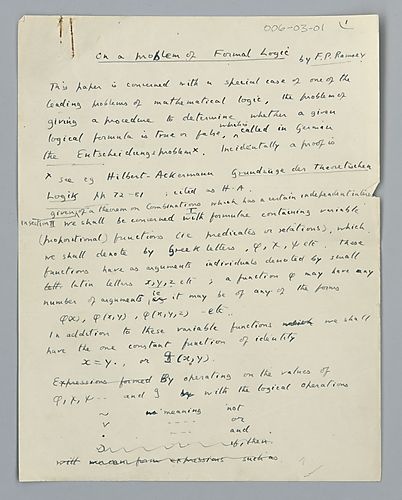 006-03-01
On a problem of Formal Logic by F.P. Ramsey
This paper is concerned with a special case of one of the
leading problems of mathematical logic, the problem of
giving a procedure to determine whether a given
logical formula is true or false, which called in German
the Entscheidungsproblem×. Incidentally a proof is
× see eg Hilbert-Ackermann Grundzüge der Theoretischen
Logik pp 72-81 : cited as H-A.
given of a theorem on combinations which has a certain independent interest
insertion II We shall be concerned with formulae containing variable
(propositional) functions (ie predicates or relations), which
we shall denote by Greek letters, φ, χ, ψ etc. These
functions have as arguments individuals denoted by small
Latin letters x, y, z etc ; a function φ may have any
number of arguments, ie it may be of any of the forms
φ(x), φ(x,y), φ(x,y,z) - etc.
In addition to these variable functions which we shall
have the one constant function of identity
x=y., or (x,y).
Expressions formed By operating on the values of
φ, χ, ψ -- and by with the logical operations
~ meaning not
∨ ---- or
. ---- and
⊃ if, then
will mean form expressions such as